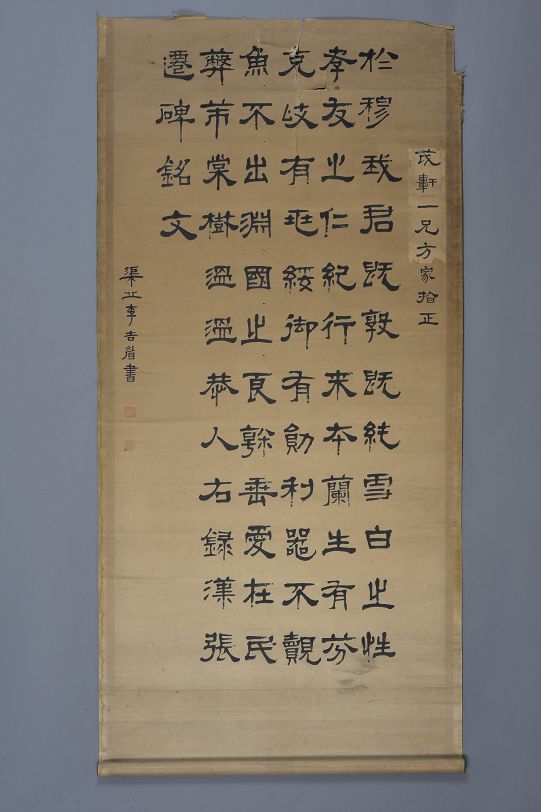 茂軒一兄方家指正
於穆我君既敦既純雪白之性
孝友之仁紀行來本蘭生有芬
克岐有兆綏御有勛利器不覿
魚不出淵國之良幹垂愛在民
蔽芾棠樹溫溫恭人右錄漢張
遷碑銘文
渠李吉書